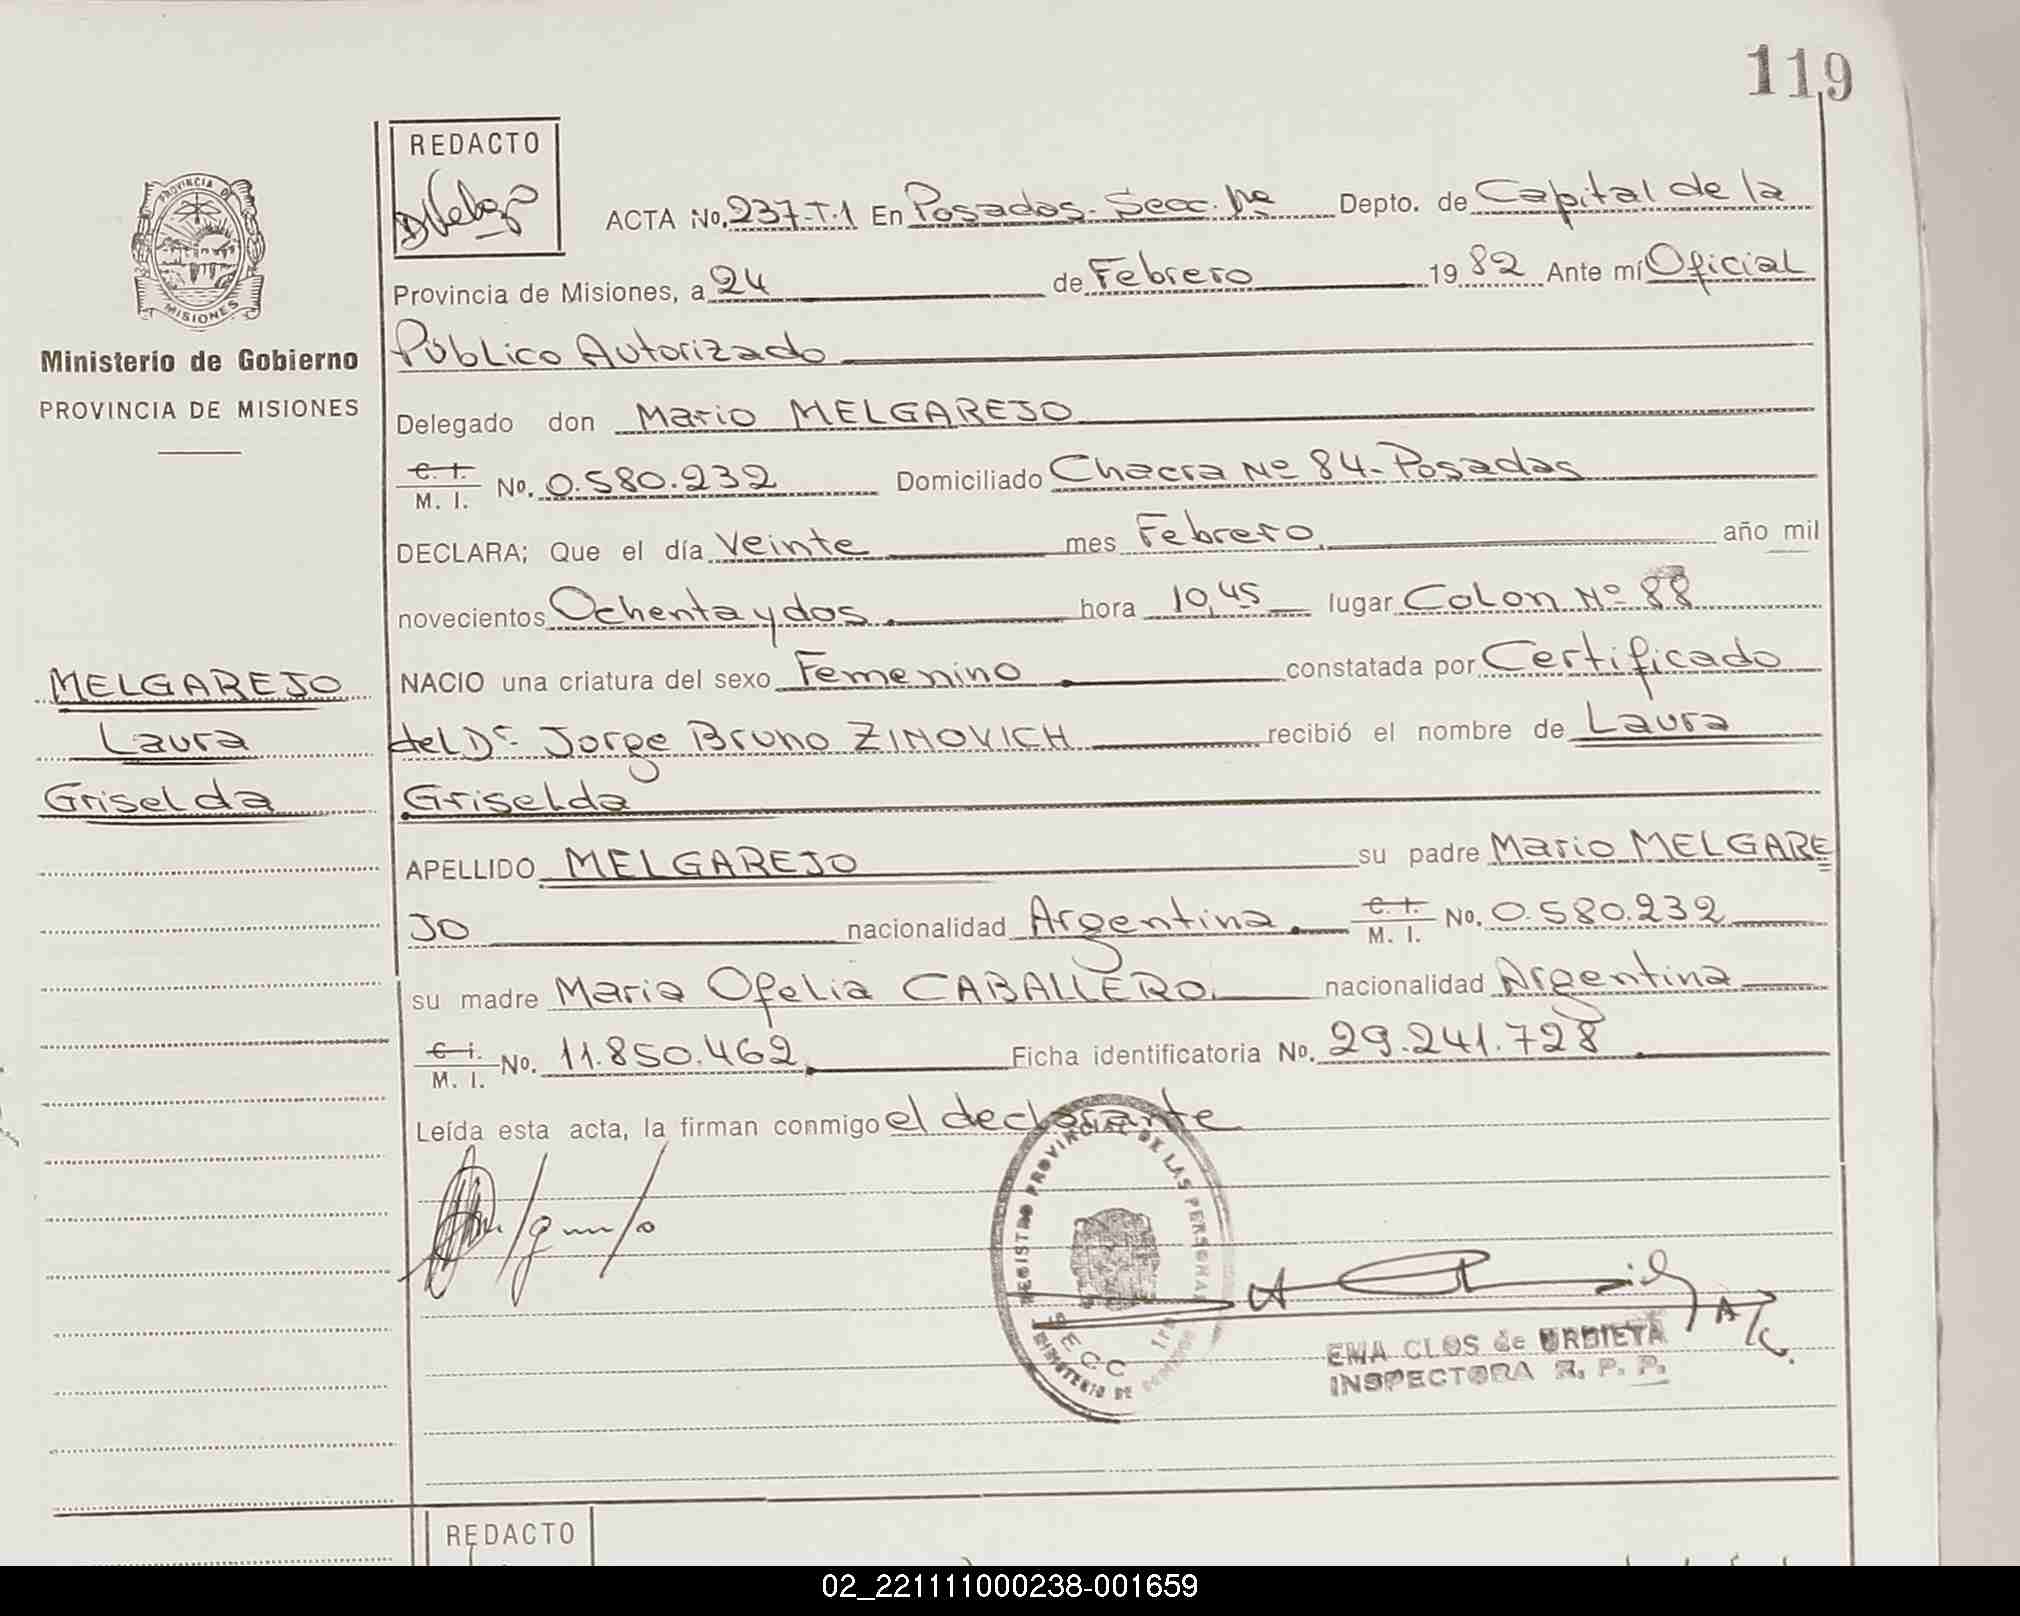 119
REDACTO
ACTA No. 237-T.1 En Posadas - Secc. 1ra Depto. de Capital de la
Provincia de Misiones, a 24 de Febrero 1982 Ante mí Oficial
Público Autorizado
Delegado don Mario MELGAREJO
C. I. / M. I. No. 0.580.232 Domiciliado Chacra Nº 84 - Posadas
DECLARA; Que el día Veinte mes Febrero año mil
novecientos Ochenta y dos. hora 10,45 lugar Colon Nº 88
NACIO una criatura del sexo Femenino constatada por Certificado
del Dr. Jorge Bruno ZINOVICH recibió el nombre de Laura
Griselda
APELLIDO MELGAREJO su padre Mario MELGARE
JO nacionalidad Argentina. C. I. / M. I. No. 0.580.232
su madre Maria Ofelia CABALLERO. nacionalidad Argentina
C. I. / M. I. No. 11.850.462 Ficha identificatoria No. 29.241.728
Leída esta acta, la firman conmigo el declarante
PROVINCIA DE
MISIONES
Ministerio de Gobierno
PROVINCIA DE MISIONES
MELGAREJO
Laura
Griselda
REGISTRO PROVINCIAL DE LAS PERSONAS
SECC 1ra
MINISTERIO DE GOBIERNO
EMA CLOS de URDIETA
INSPECTORA R. P. P.
REDACTO
02_221111000238-001659